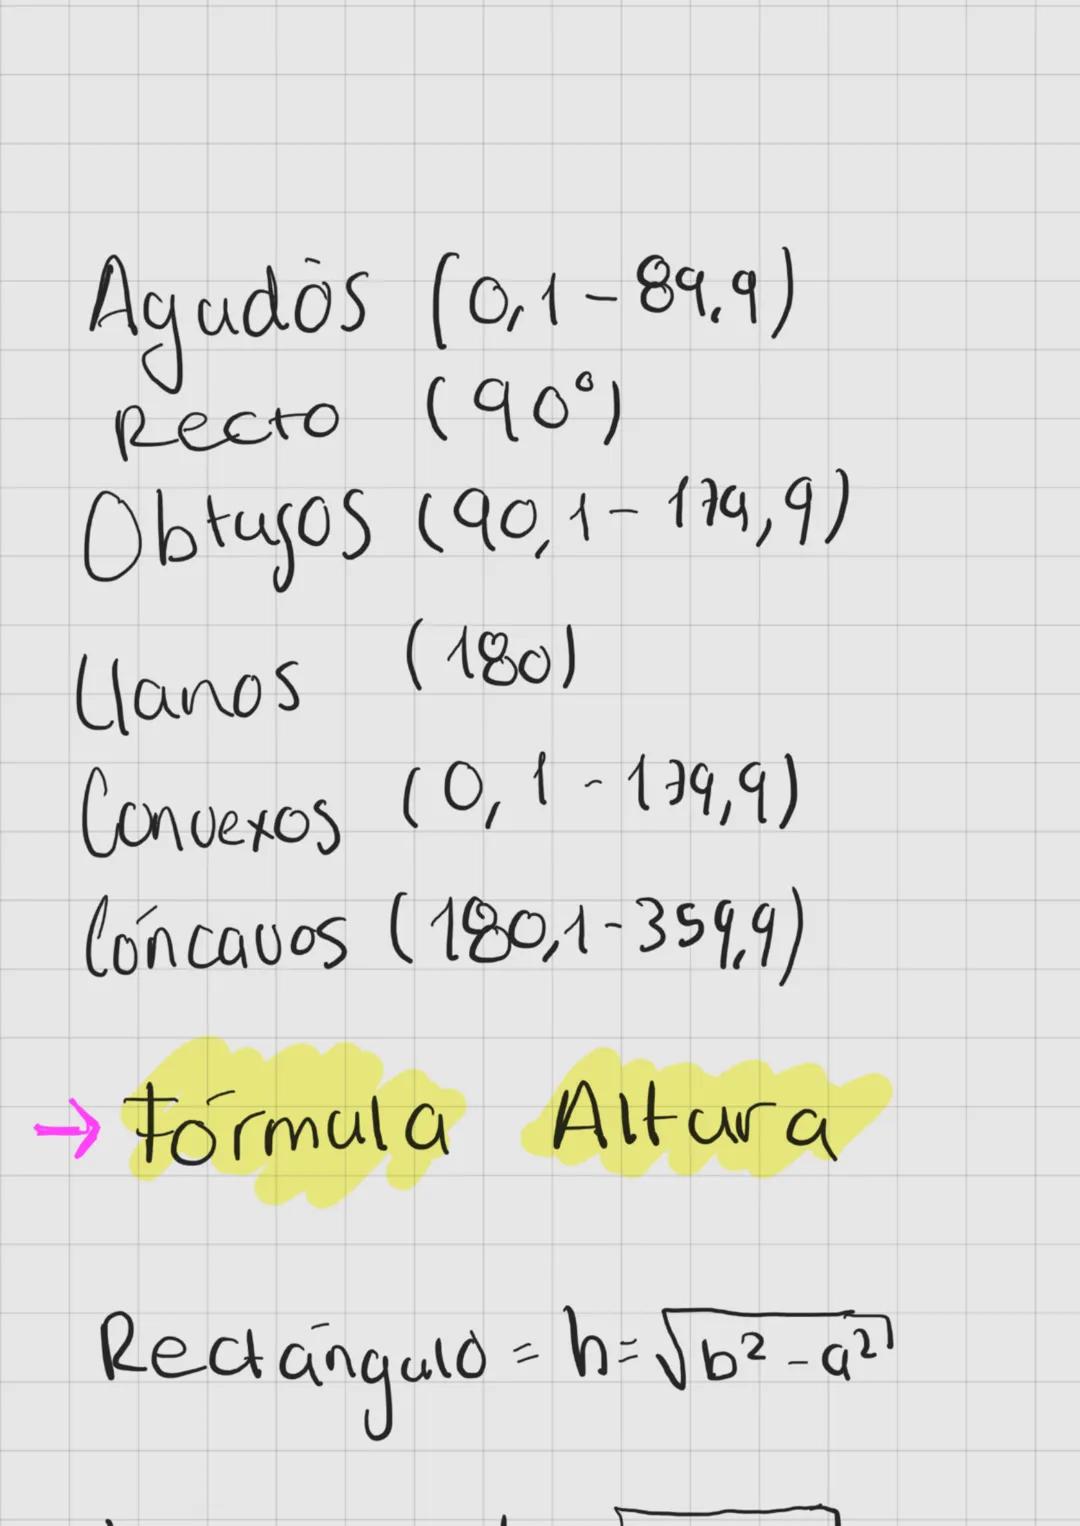 Agudos (0,1-89,9)
Recto (90°)
Obtusos (90,1-179,9)
Llanos (180)
Convexos (0,1-179,9)
Cóncavos (180,1-359,9)
→ Fórmula Altura
Rectángulo = h=√b²-a²